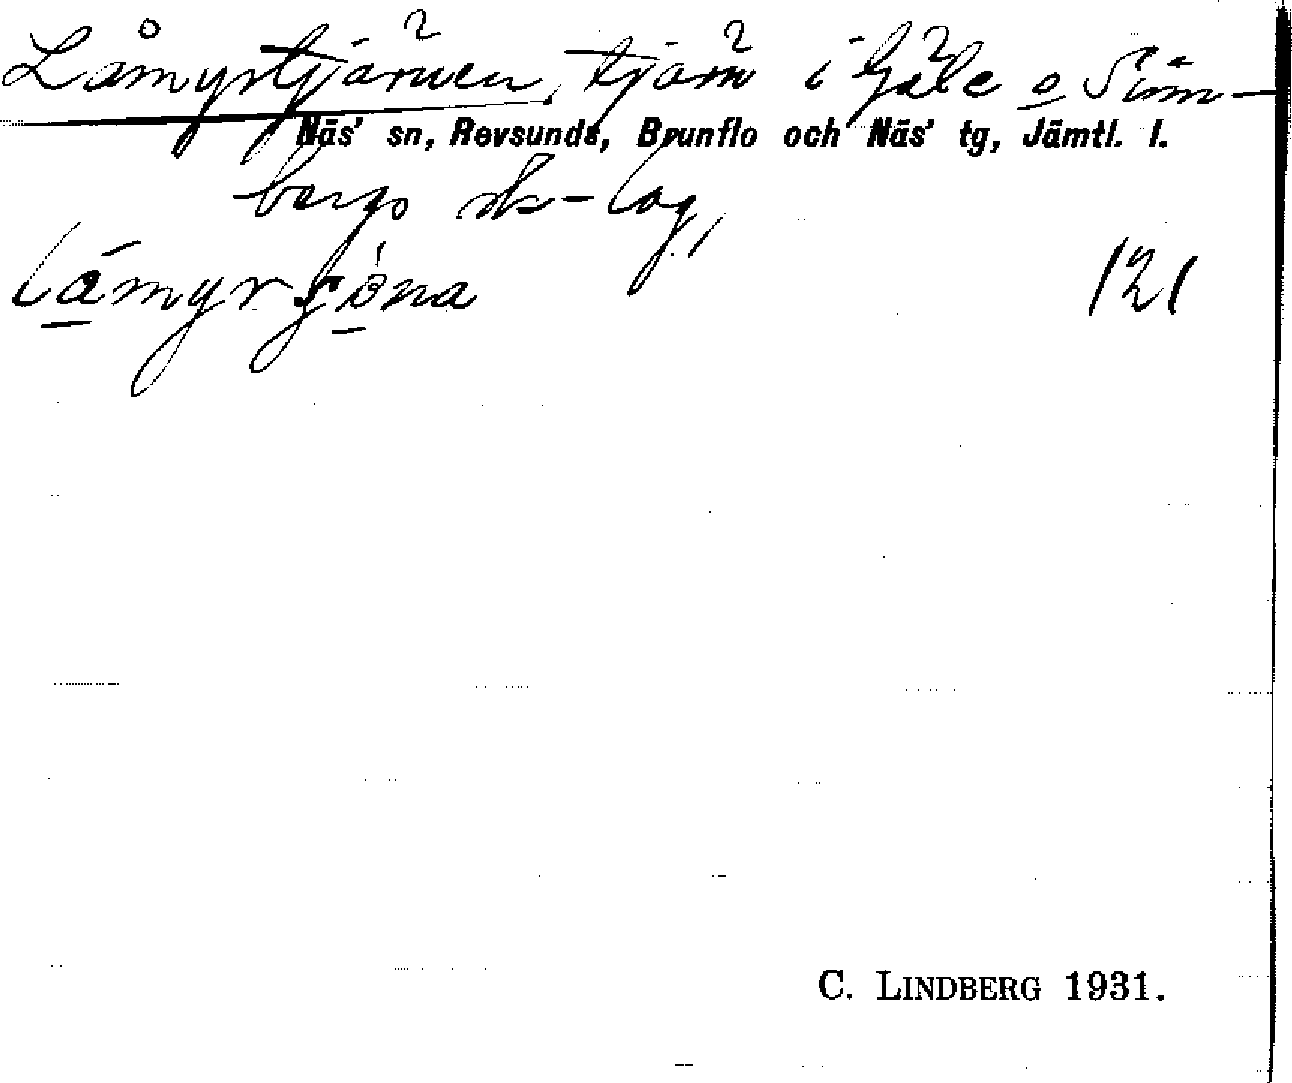 Låmyrtjärnen, tjärn i Gåle o Sinn-
Näs' sn, Revsunds, Brunflo och Näs' tg, Jämtl. l.
bergs sk-lag,
låmyrsjöna 121
C. LINDBERG 1931.